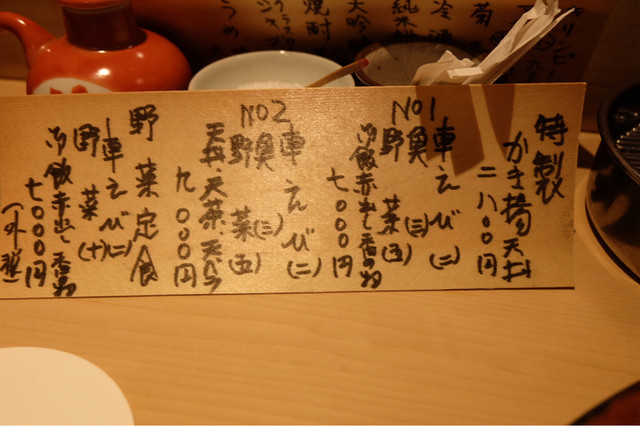 特製
かき揚天丼
二八〇〇円
No1
車えび(二)
奥(三)
野菜(五)
御飯赤出し香の物
七〇〇〇円
No2
車えび(二)
奥(三)
野菜(五)
天丼、天茶、天公
九〇〇〇円
野菜定食
車えび(二)
野菜(十)
御飯赤出し香の物
七〇〇〇円
(外税)
菊
冷酒
純米
大吟
焼酎
グラス
うめ